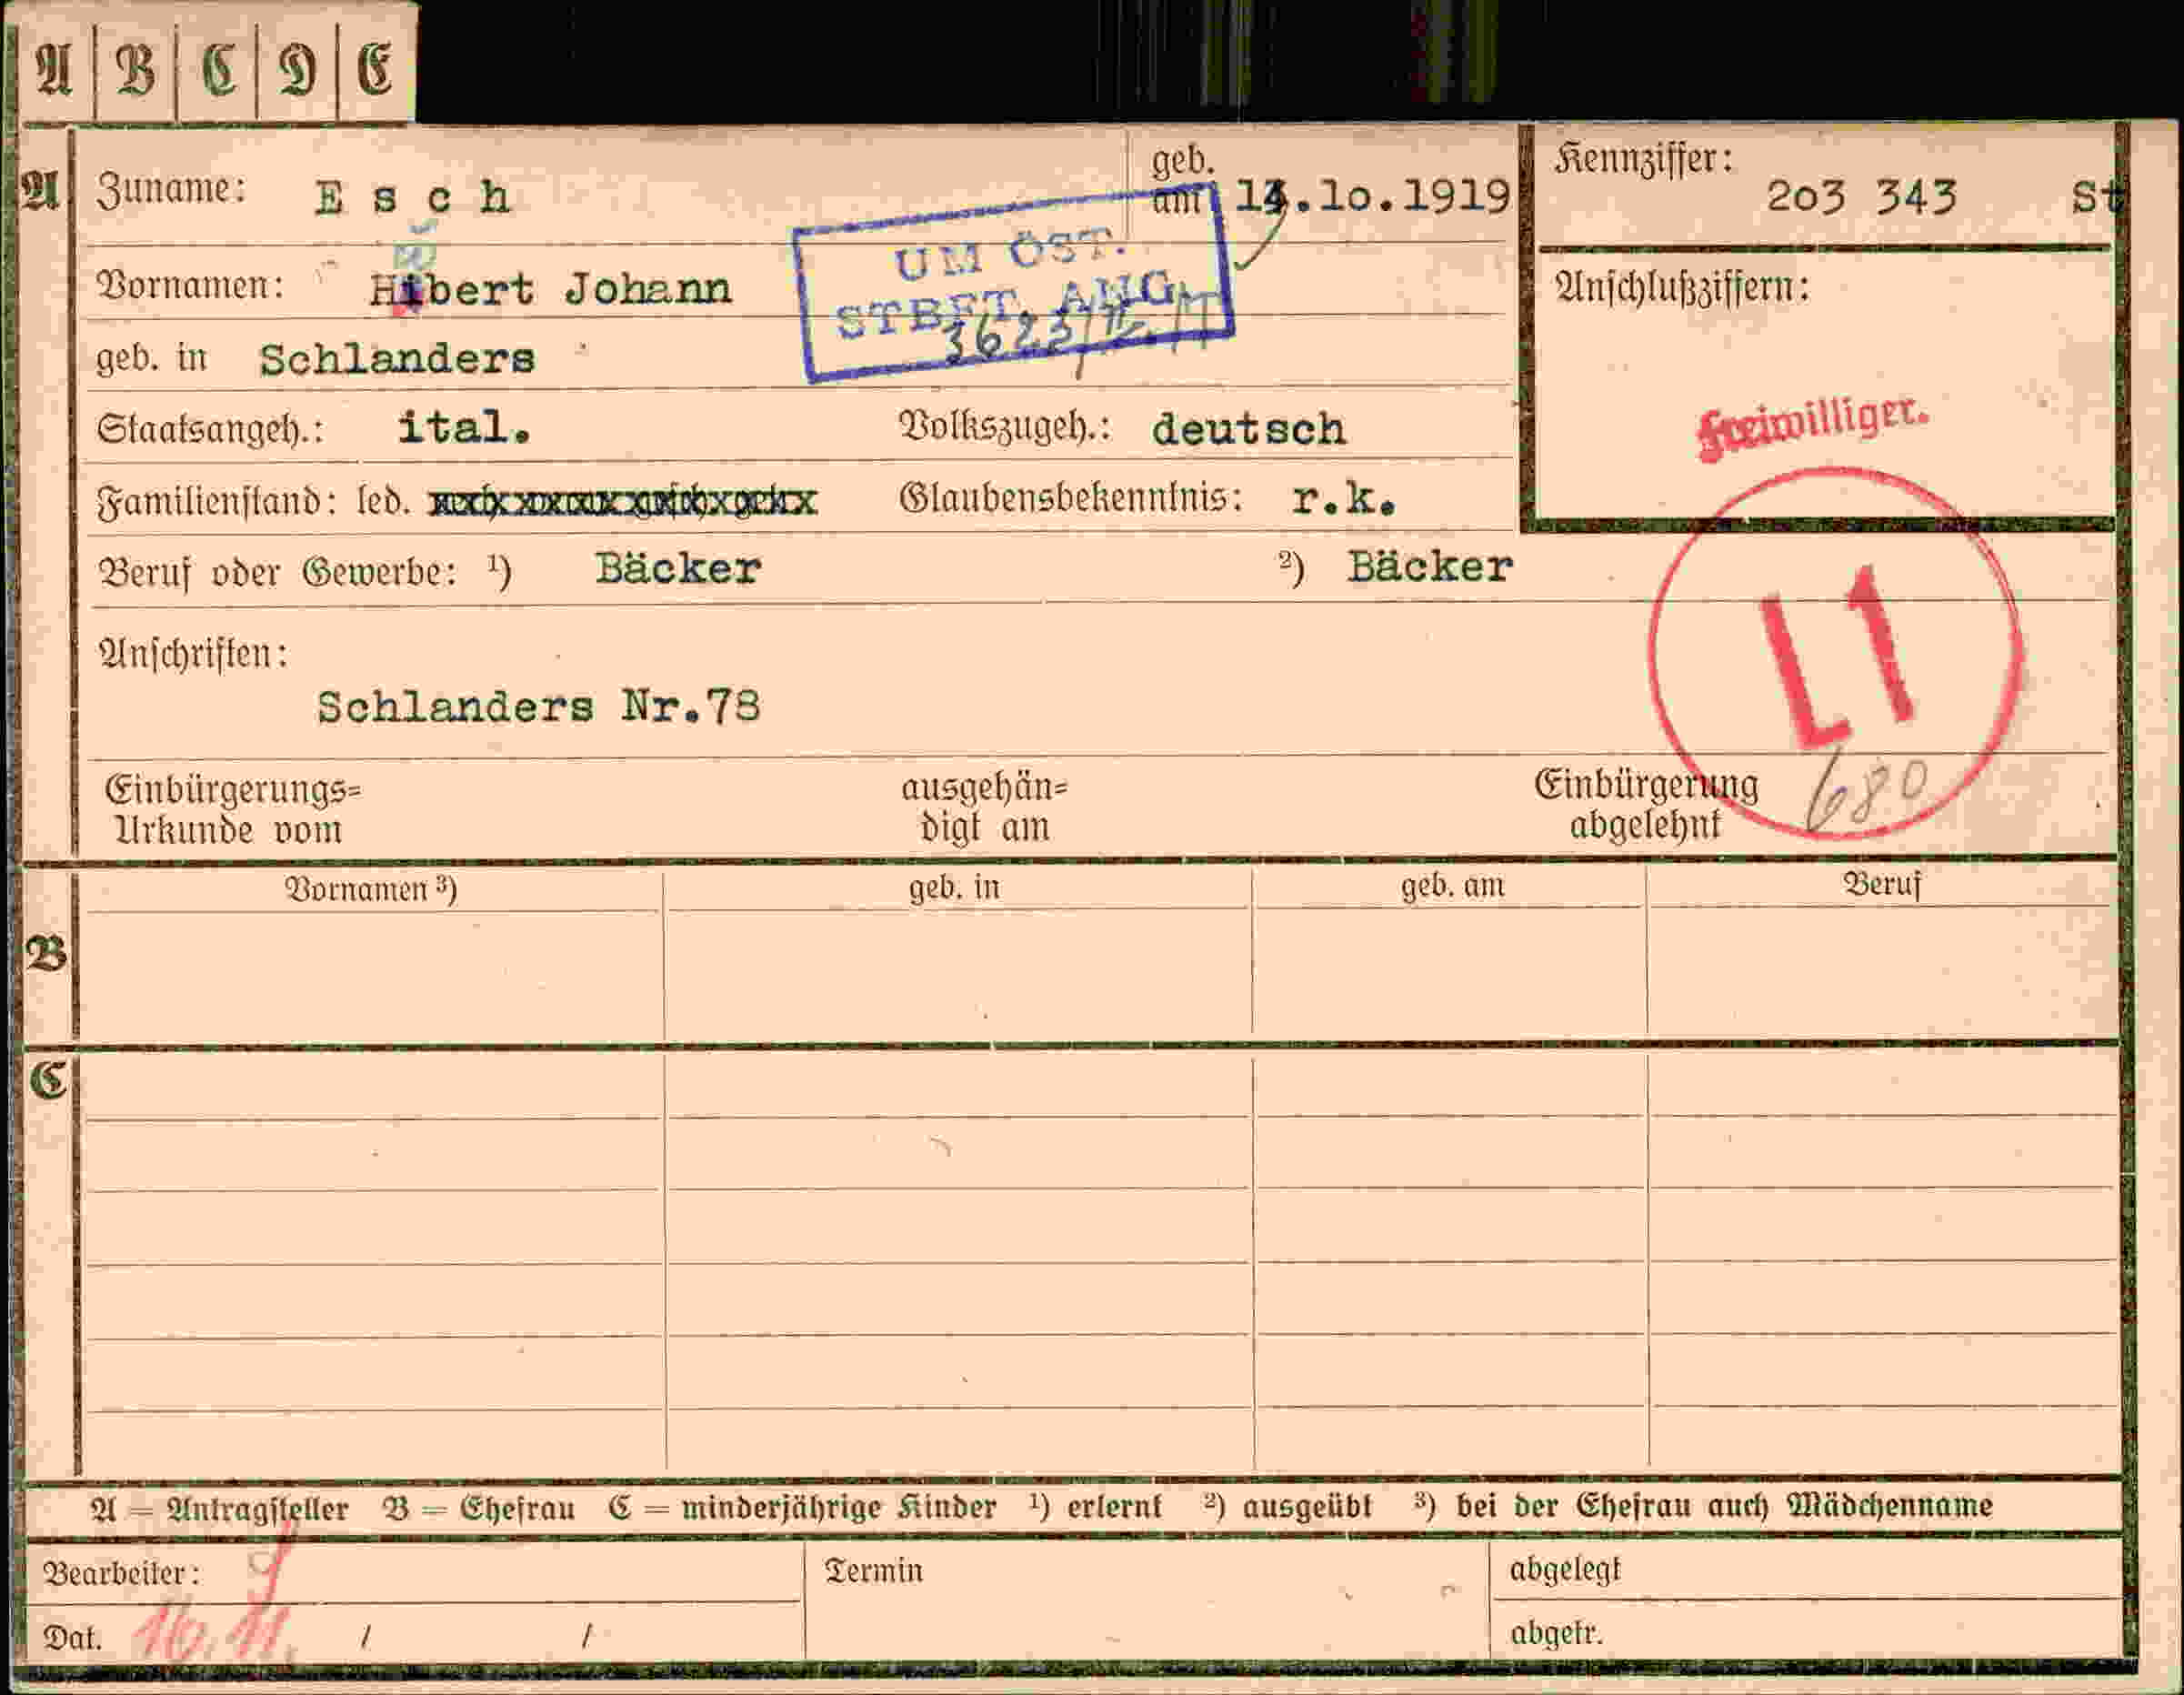 A B C D E
A Zuname: E s c h geb. am .10.1919 Kennziffer: 2o3 343 St
UM ÖST.
STBFT. ANG.
Vornamen: Johann Anschlußziffern:
geb. in Schlanders
freiwilliger.
Staatsangeh.: ital. Volkszugeh.: deutsch
Familienstand: led. Glaubensbekenntnis: r.k.
Beruf oder Gewerbe: ¹) Bäcker ²) Bäcker
L1
Anschriften:
Schlanders Nr.78
Einbürgerungs= ausgehän= Einbürgerung 680
Urkunde vom digt am abgelehnt
B Vornamen ³) geb. in geb. am Beruf
C
A = Antragsteller B = Ehefrau C = minderjährige Kinder ¹) erlernt ²) ausgeübt ³) bei der Ehefrau auch Mädchenname
Bearbeiter: Termin abgelegt
Dat. 16.11. / / abgetr.